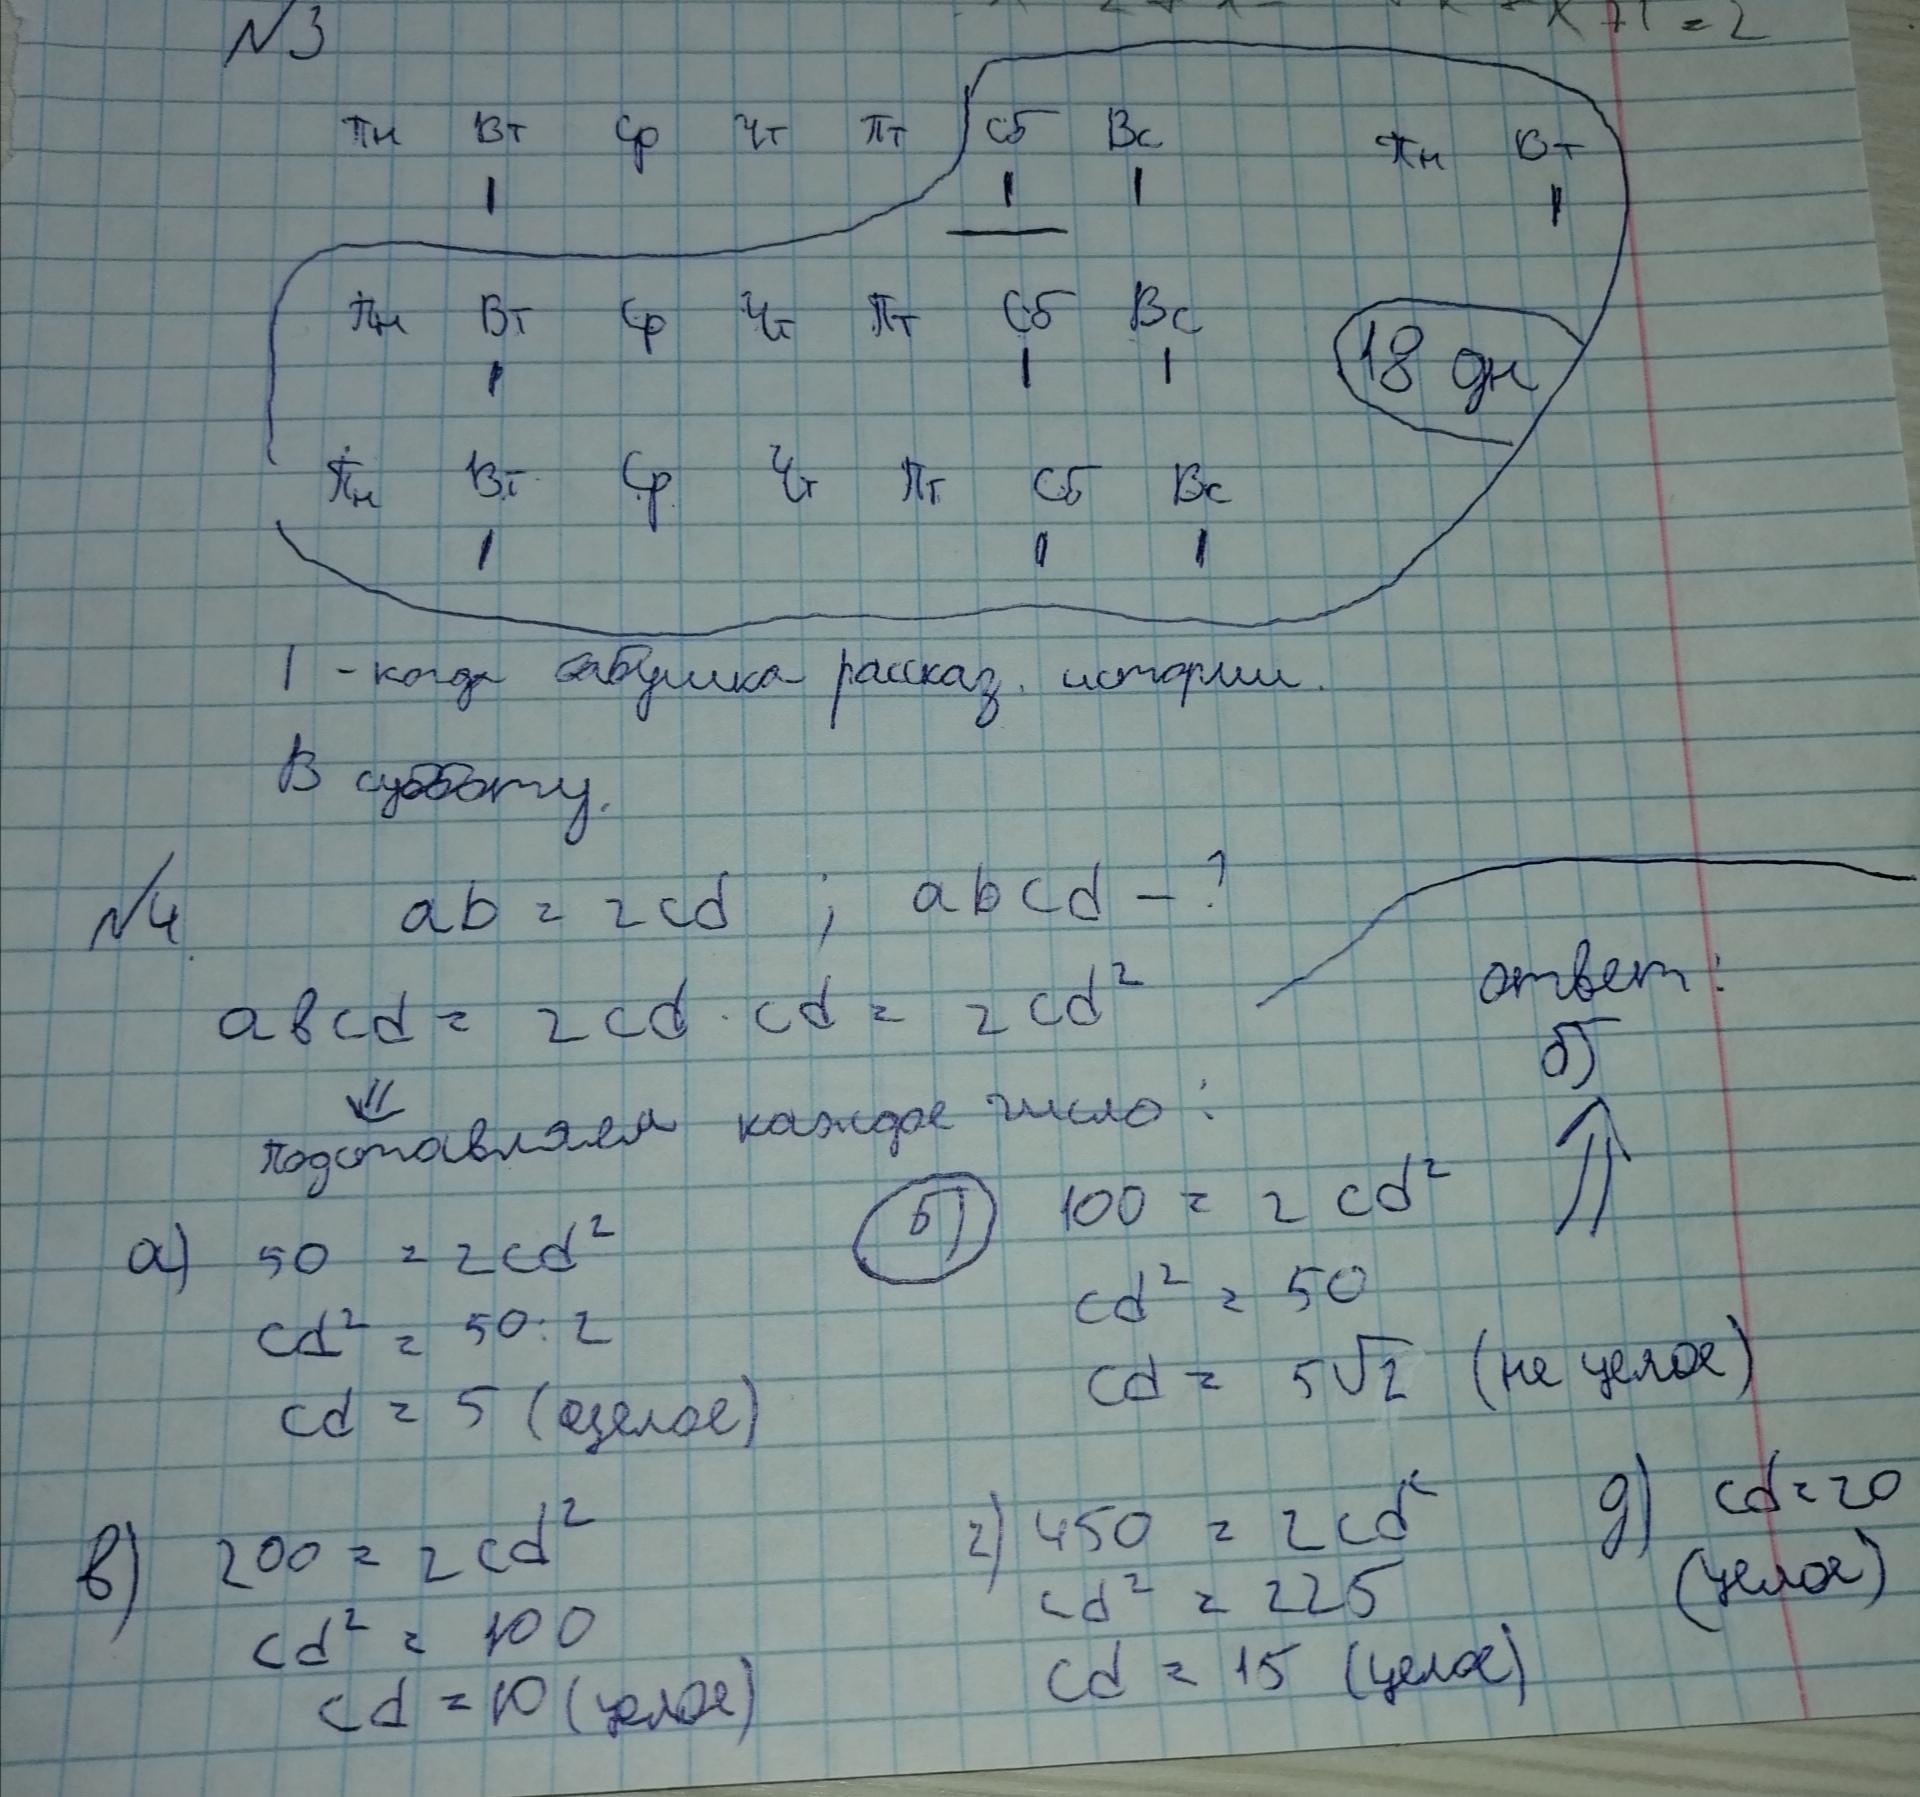 №3
Пн Вт Ср Чт Пт Сб Вс Пн Вт
1 1 1 1
Пн Вт Ср Чт Пт Сб Вс
1 1 1
18 дн
Пн Вт Ср Чт Пт Сб Вс
1 1 1
1 - когда бабушка рассказ. истории.
В субботу.
№4 ab = 2cd ; abcd - ?
abcd = 2cd · cd = 2cd²
ответ:
б)
⇓
подставляем каждое число:
а) 50 = 2cd²
cd² = 50:2
cd = 5 (целое)
б) 100 = 2cd²
cd² = 50
cd = 5√2 (не целое)
в) 200 = 2cd²
cd² = 100
cd = 10 (целое)
г) 450 = 2cd²
cd² = 225
cd = 15 (целое)
д) cd = 20
(целое)